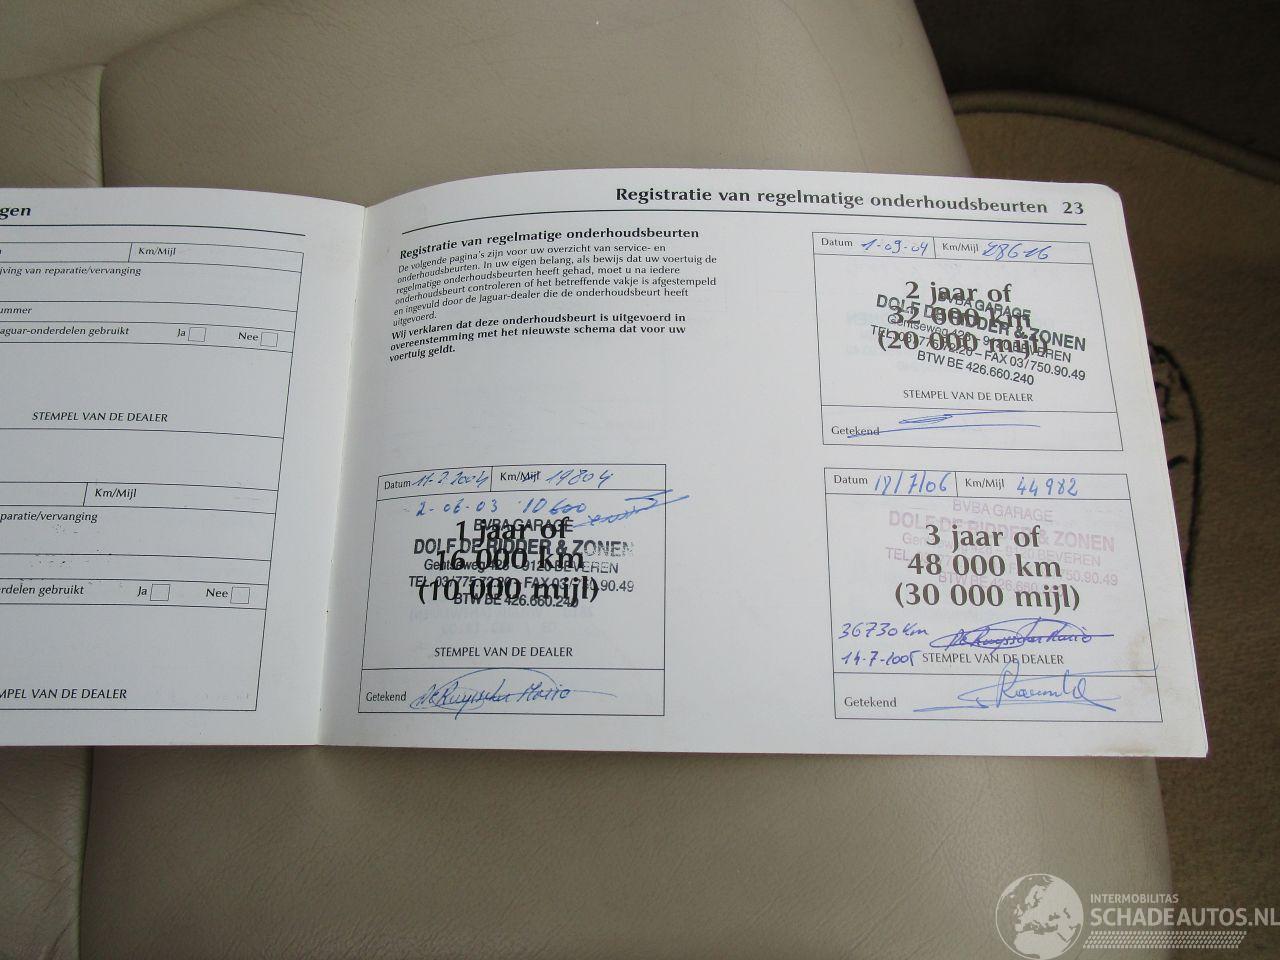 gen
Km/Mijl
jving van reparatie/vervanging
ummer
aguar-onderdelen gebruikt Ja Nee
STEMPEL VAN DE DEALER
Km/Mijl
paratie/vervanging
rdelen gebruikt Ja Nee
MPEL VAN DE DEALER
Registratie van regelmatige onderhoudsbeurten 23
Registratie van regelmatige onderhoudsbeurten
De volgende pagina's zijn voor uw overzicht van service- en
onderhoudsbeurten. In uw eigen belang, als bewijs dat uw voertuig de
regelmatige onderhoudsbeurten heeft gehad, moet u na iedere
onderhoudsbeurt controleren of het betreffende vakje is afgestempeld
en ingevuld door de Jaguar-dealer die de onderhoudsbeurt heeft
uitgevoerd.
Wij verklaren dat deze onderhoudsbeurt is uitgevoerd in
overeenstemming met het nieuwste schema dat voor uw
voertuig geldt.
Datum 11-2-2004 Km/Mijl 19804
2-06-03 10600
1 jaar of
16 000 km
(10 000 mijl)
BVBA GARAGE
DOLF DE RIDDER & ZONEN
Gentseweg 428 - 9120 BEVEREN
TEL. 03/775.72.20 - FAX 03/750.90.49
BTW BE 426.660.240
STEMPEL VAN DE DEALER
Getekend De Ruysscher Mario
Datum 1-09-04 Km/Mijl 28616
2 jaar of
32 000 km
(20 000 mijl)
BVBA GARAGE
DOLF DE RIDDER & ZONEN
Gentseweg 428 - 9120 BEVEREN
TEL. 03/775.72.20 - FAX 03/750.90.49
BTW BE 426.660.240
STEMPEL VAN DE DEALER
Getekend
Datum 18/7/06 Km/Mijl 44982
3 jaar of
48 000 km
(30 000 mijl)
BVBA GARAGE
DOLF DE RIDDER & ZONEN
Gentseweg 428 - 9120 BEVEREN
TEL. 03/775.72.20 - FAX 03/750.90.49
BTW BE 426.660.240
36730 km De Ruysscher Mario
14-7-2005 STEMPEL VAN DE DEALER
Getekend
INTERMOBILITAS
SCHADEAUTOS.NL